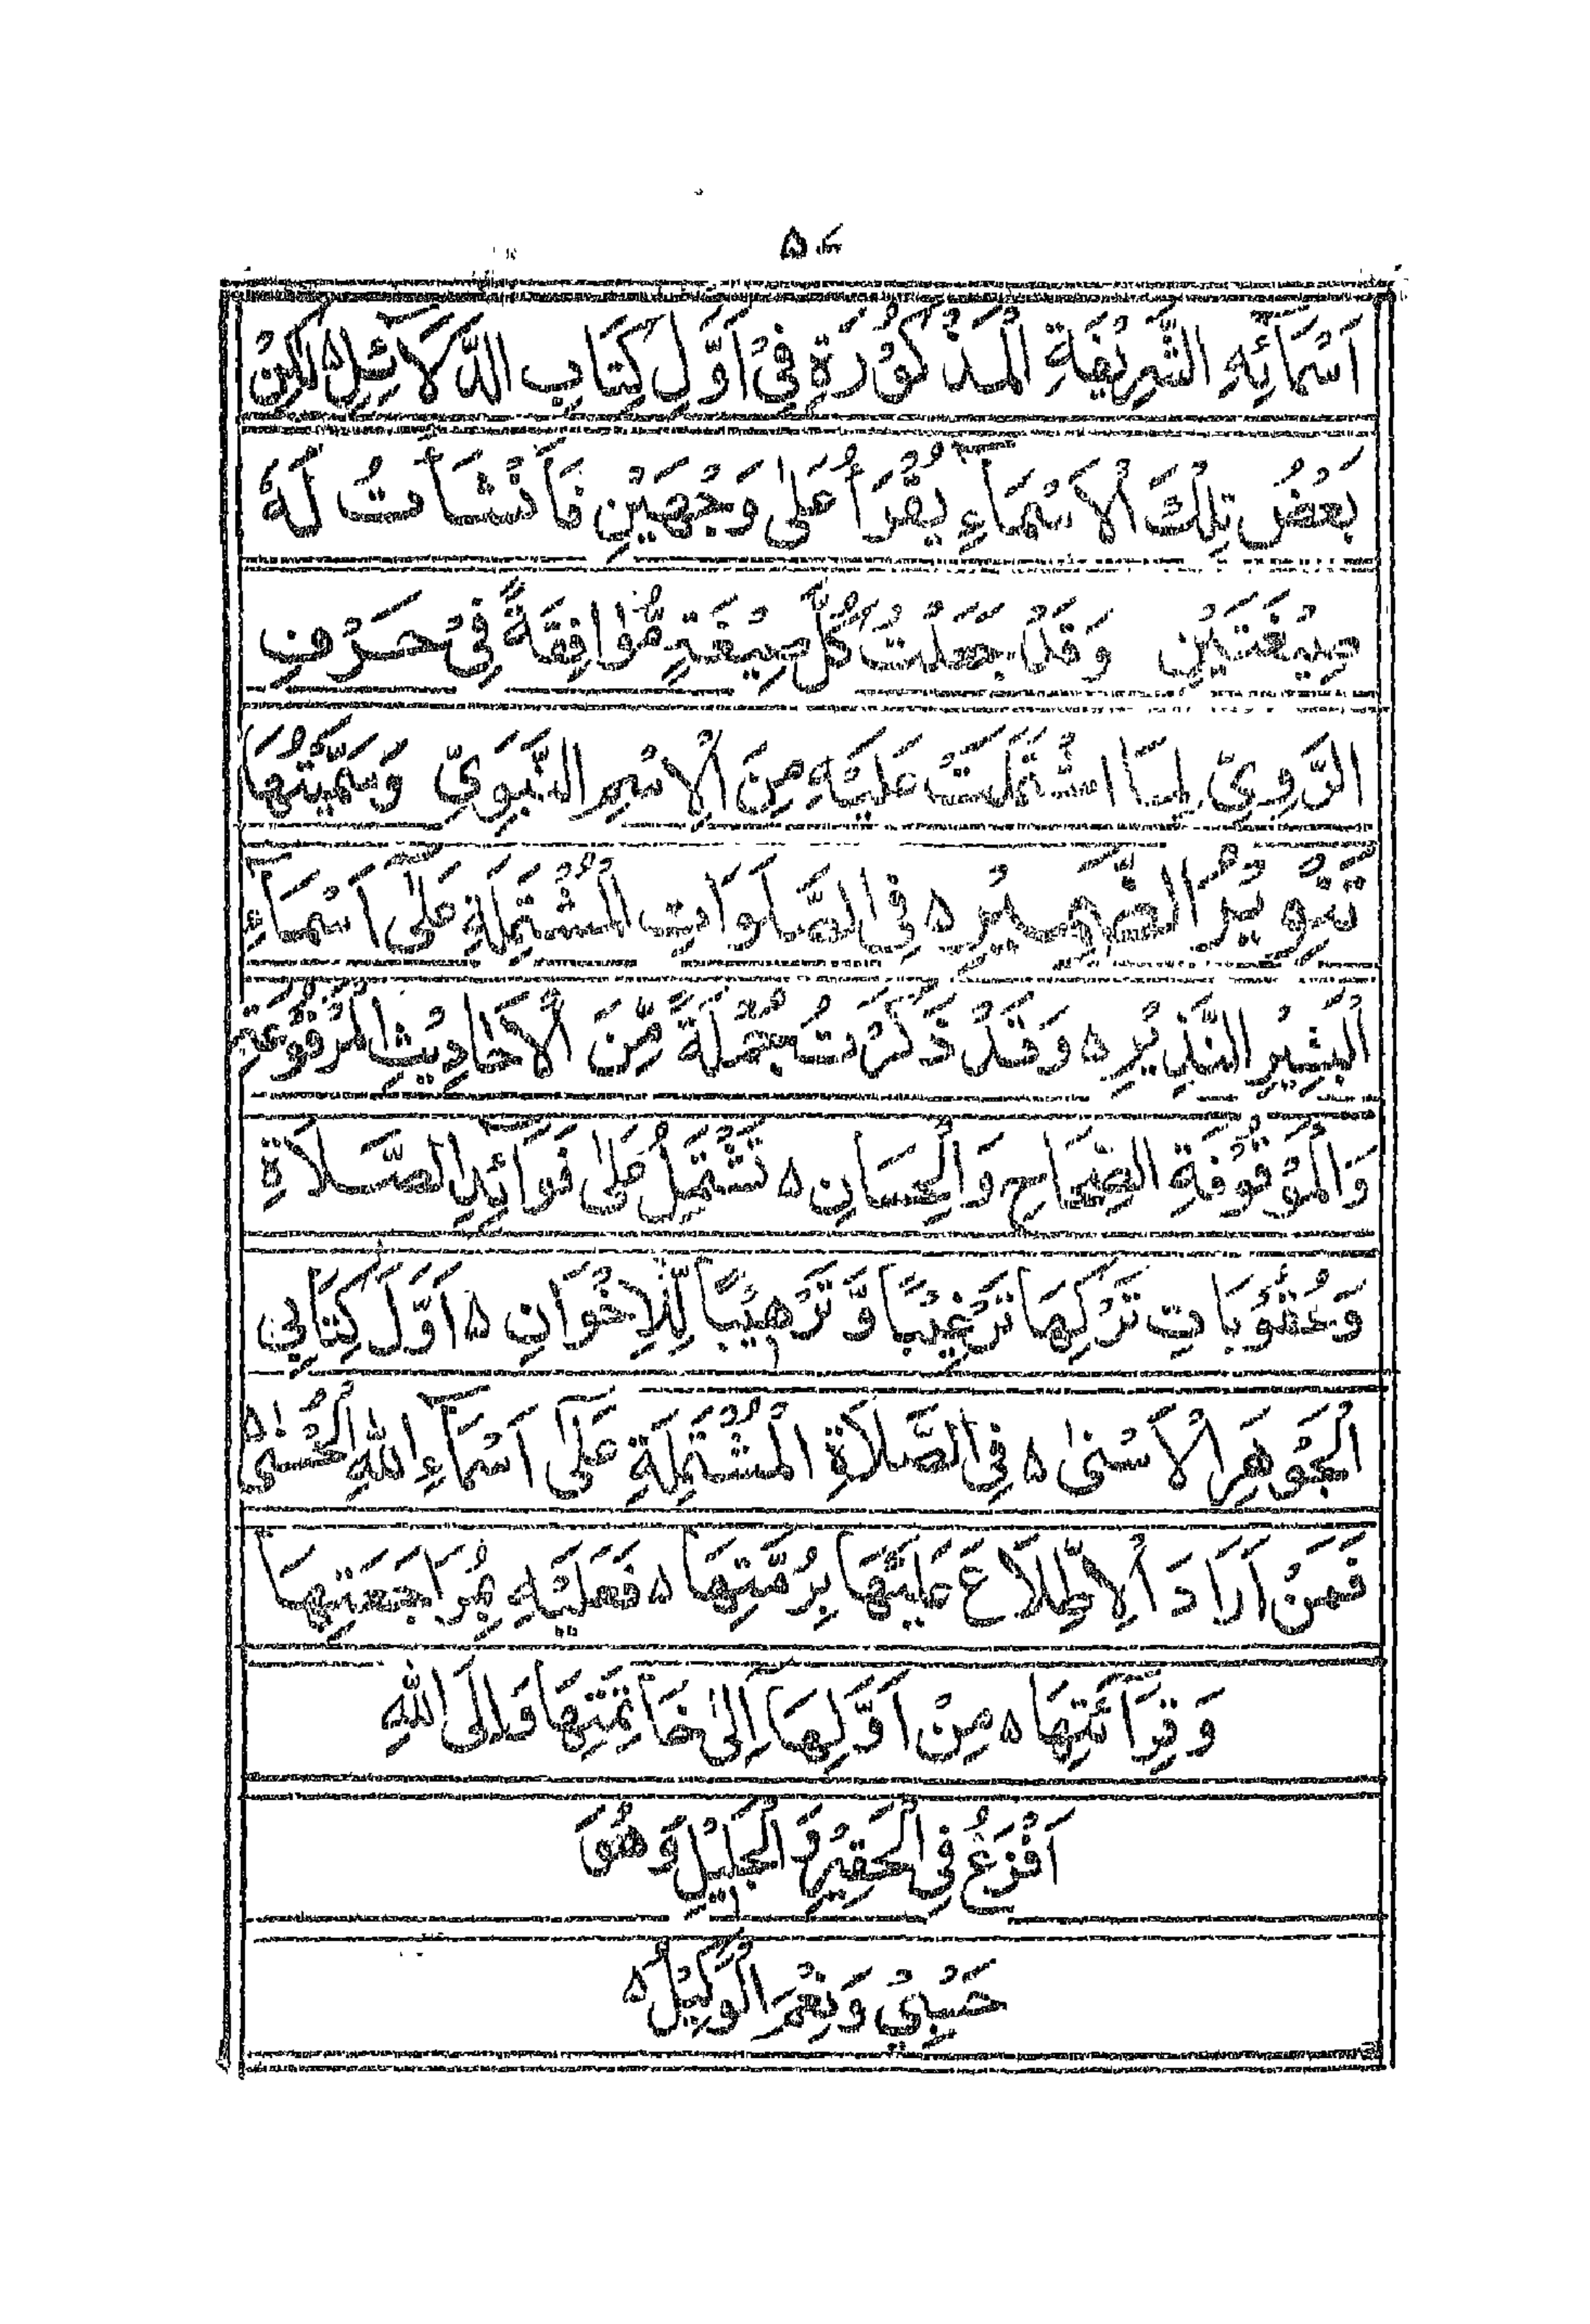 ۵۷
اَسْمَائِهِ الشَّرِيْفَةِ الْمَذْكُوْرَةِ فِيْ اَوَّلِ كِتَابِ الدَّلَائِلِ ۵ لٰكِنْ
بَعْضُ تِلْكَ الْاَسْمَاءِ يُقْرَأُ عَلىٰ وَجْهَيْنِ فَاَنْشَأْتُ لَهٗ
صِيْغَتَيْنِ وَقَدْ جَعَلْتُ كُلَّ صِيْغَةٍ مُّوَافِقَةً فِيْ حَرْفِ
الرَّوِيِّ لِمَا اشْتَمَلَتْ عَلَيْهِ مِنَ الْاِسْمِ النَّبَوِيِّ وَسَمَّيْتُهَا
تَنْوِيْرُ الضَّمِيْرِ ۵ فِي الصَّلَوَاتِ الْمُشْتَمِلَةِ عَلىٰ اَسْمَاءِ
الْبَشِيْرِ النَّذِيْرِ ۵ وَقَدْ ذَكَرْتُ جُمْلَةً مِّنَ الْاَحَادِيْثِ الْمَرْفُوْعَةِ
وَالْمَوْقُوْفَةِ الصِّحَاحِ وَالْحِسَانِ ۵ تَشْتَمِلُ عَلىٰ فَوَائِدِ الصَّلَاةِ
وَعُقُوْبَاتِ تَرْكِهَا تَرْغِيْبًا وَّ تَرْهِيْبًا لِّلْاِخْوَانِ ۵ اَوَّلَ كِتَابِي
الْجَوْهَرِ الْاَسْنىٰ ۵ فِي الصَّلَاةِ الْمُشْتَمِلَةِ عَلىٰ اَسْمَآءِ اللهِ الْحُسْنىٰ ۵
فَمَنْ اَرَادَ الْاِطِّلَاعَ عَلَيْهَا بِرُمَّتِهَا ۵ فَعَلَيْهِ بِمُرَاجَعَتِهَا
وَ قِرَآئَتِهَا ۵ مِنْ اَوَّلِهَا اِلىٰ خَاتِمَتِهَا وَ اِلَى اللهِ
اَفْزَعُ فِي الْحَقِيْرِ وَ الْجَلِيْلِ وَ هُوَ
حَسْبِيْ وَ نِعْمَ الْوَكِيْلُ ۵